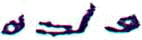 ولده